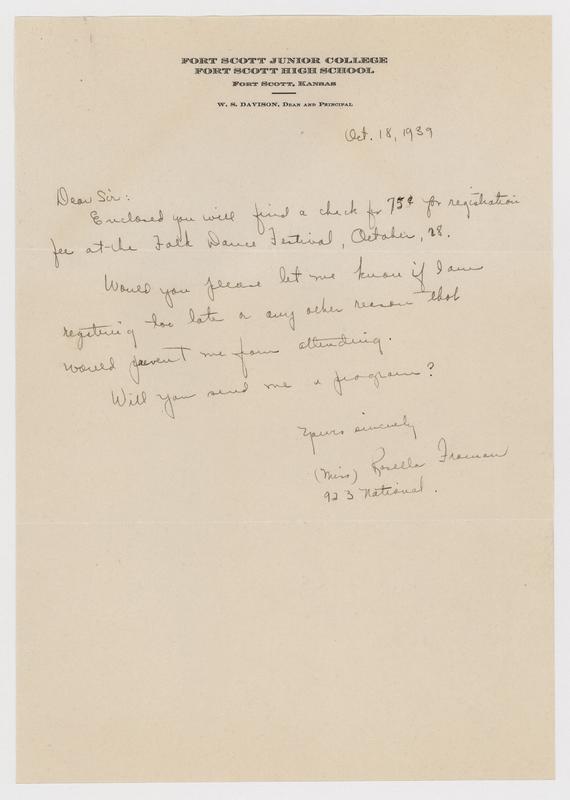 FORT SCOTT JUNIOR COLLEGE
FORT SCOTT HIGH SCHOOL
FORT SCOTT, KANSAS
W. S. DAVISON, DEAN AND PRINCIPAL
Oct. 18, 1939
Dear Sir:
Enclosed you will find a check for 75¢ for registration
fee at the Folk Dance Festival, October, 28.
Would you please let me know if I am
registering too late or any other reason that
would prevent me from attending.
Will you send me a program?
Yours sincerely
(Miss) Rosella
923 National.